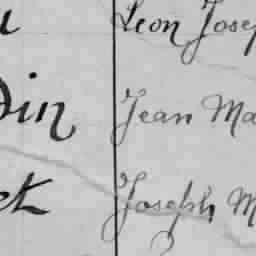 Leon Josep
din Jean Ma
et Joseph M